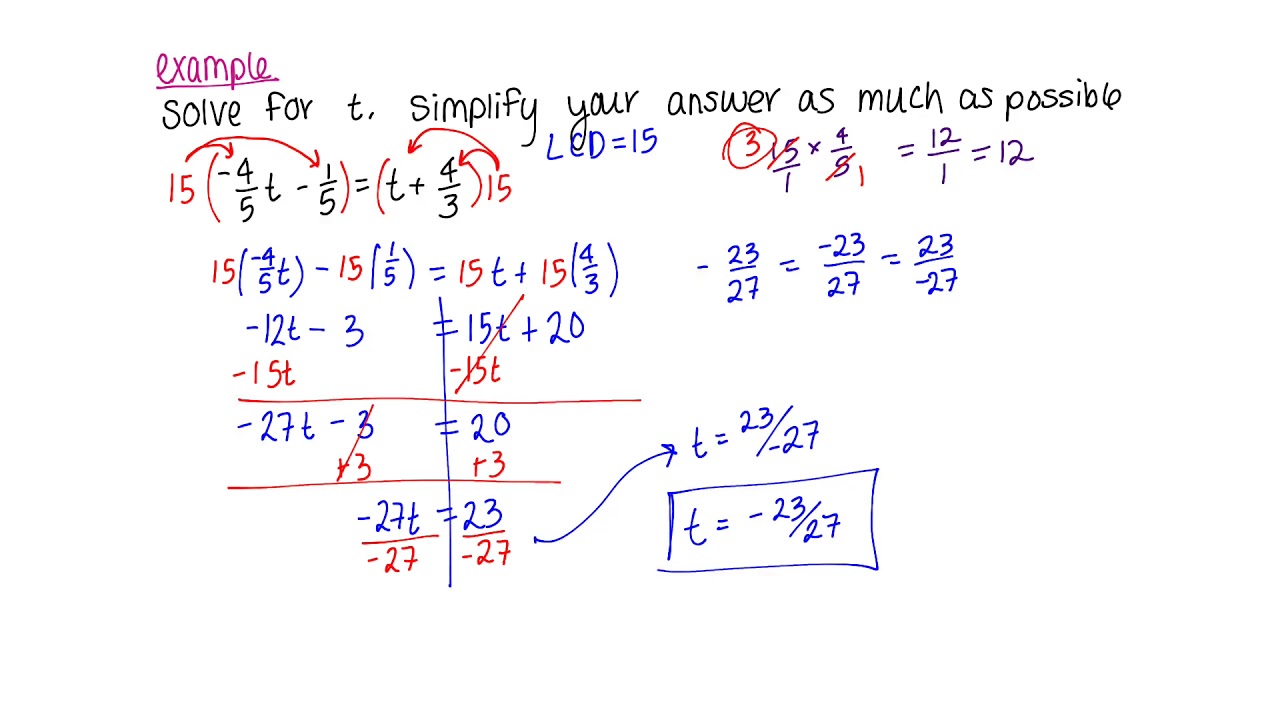 example
solve for t. Simplify your answer as much as possible
LCD=15
3 15/1 × 4/5 1 = 12/1 = 12
15(-4/5 t - 1/5) = (t + 4/3)15
15(-4/5 t) - 15(1/5) = 15t + 15(4/3)
- 23/27 = -23/27 = 23/-27
-12t - 3 = 15t + 20
-15t -15t
-27t - 3 = 20
+3 +3
t = 23/-27
-27t = 23
-27 -27
t = -23/27